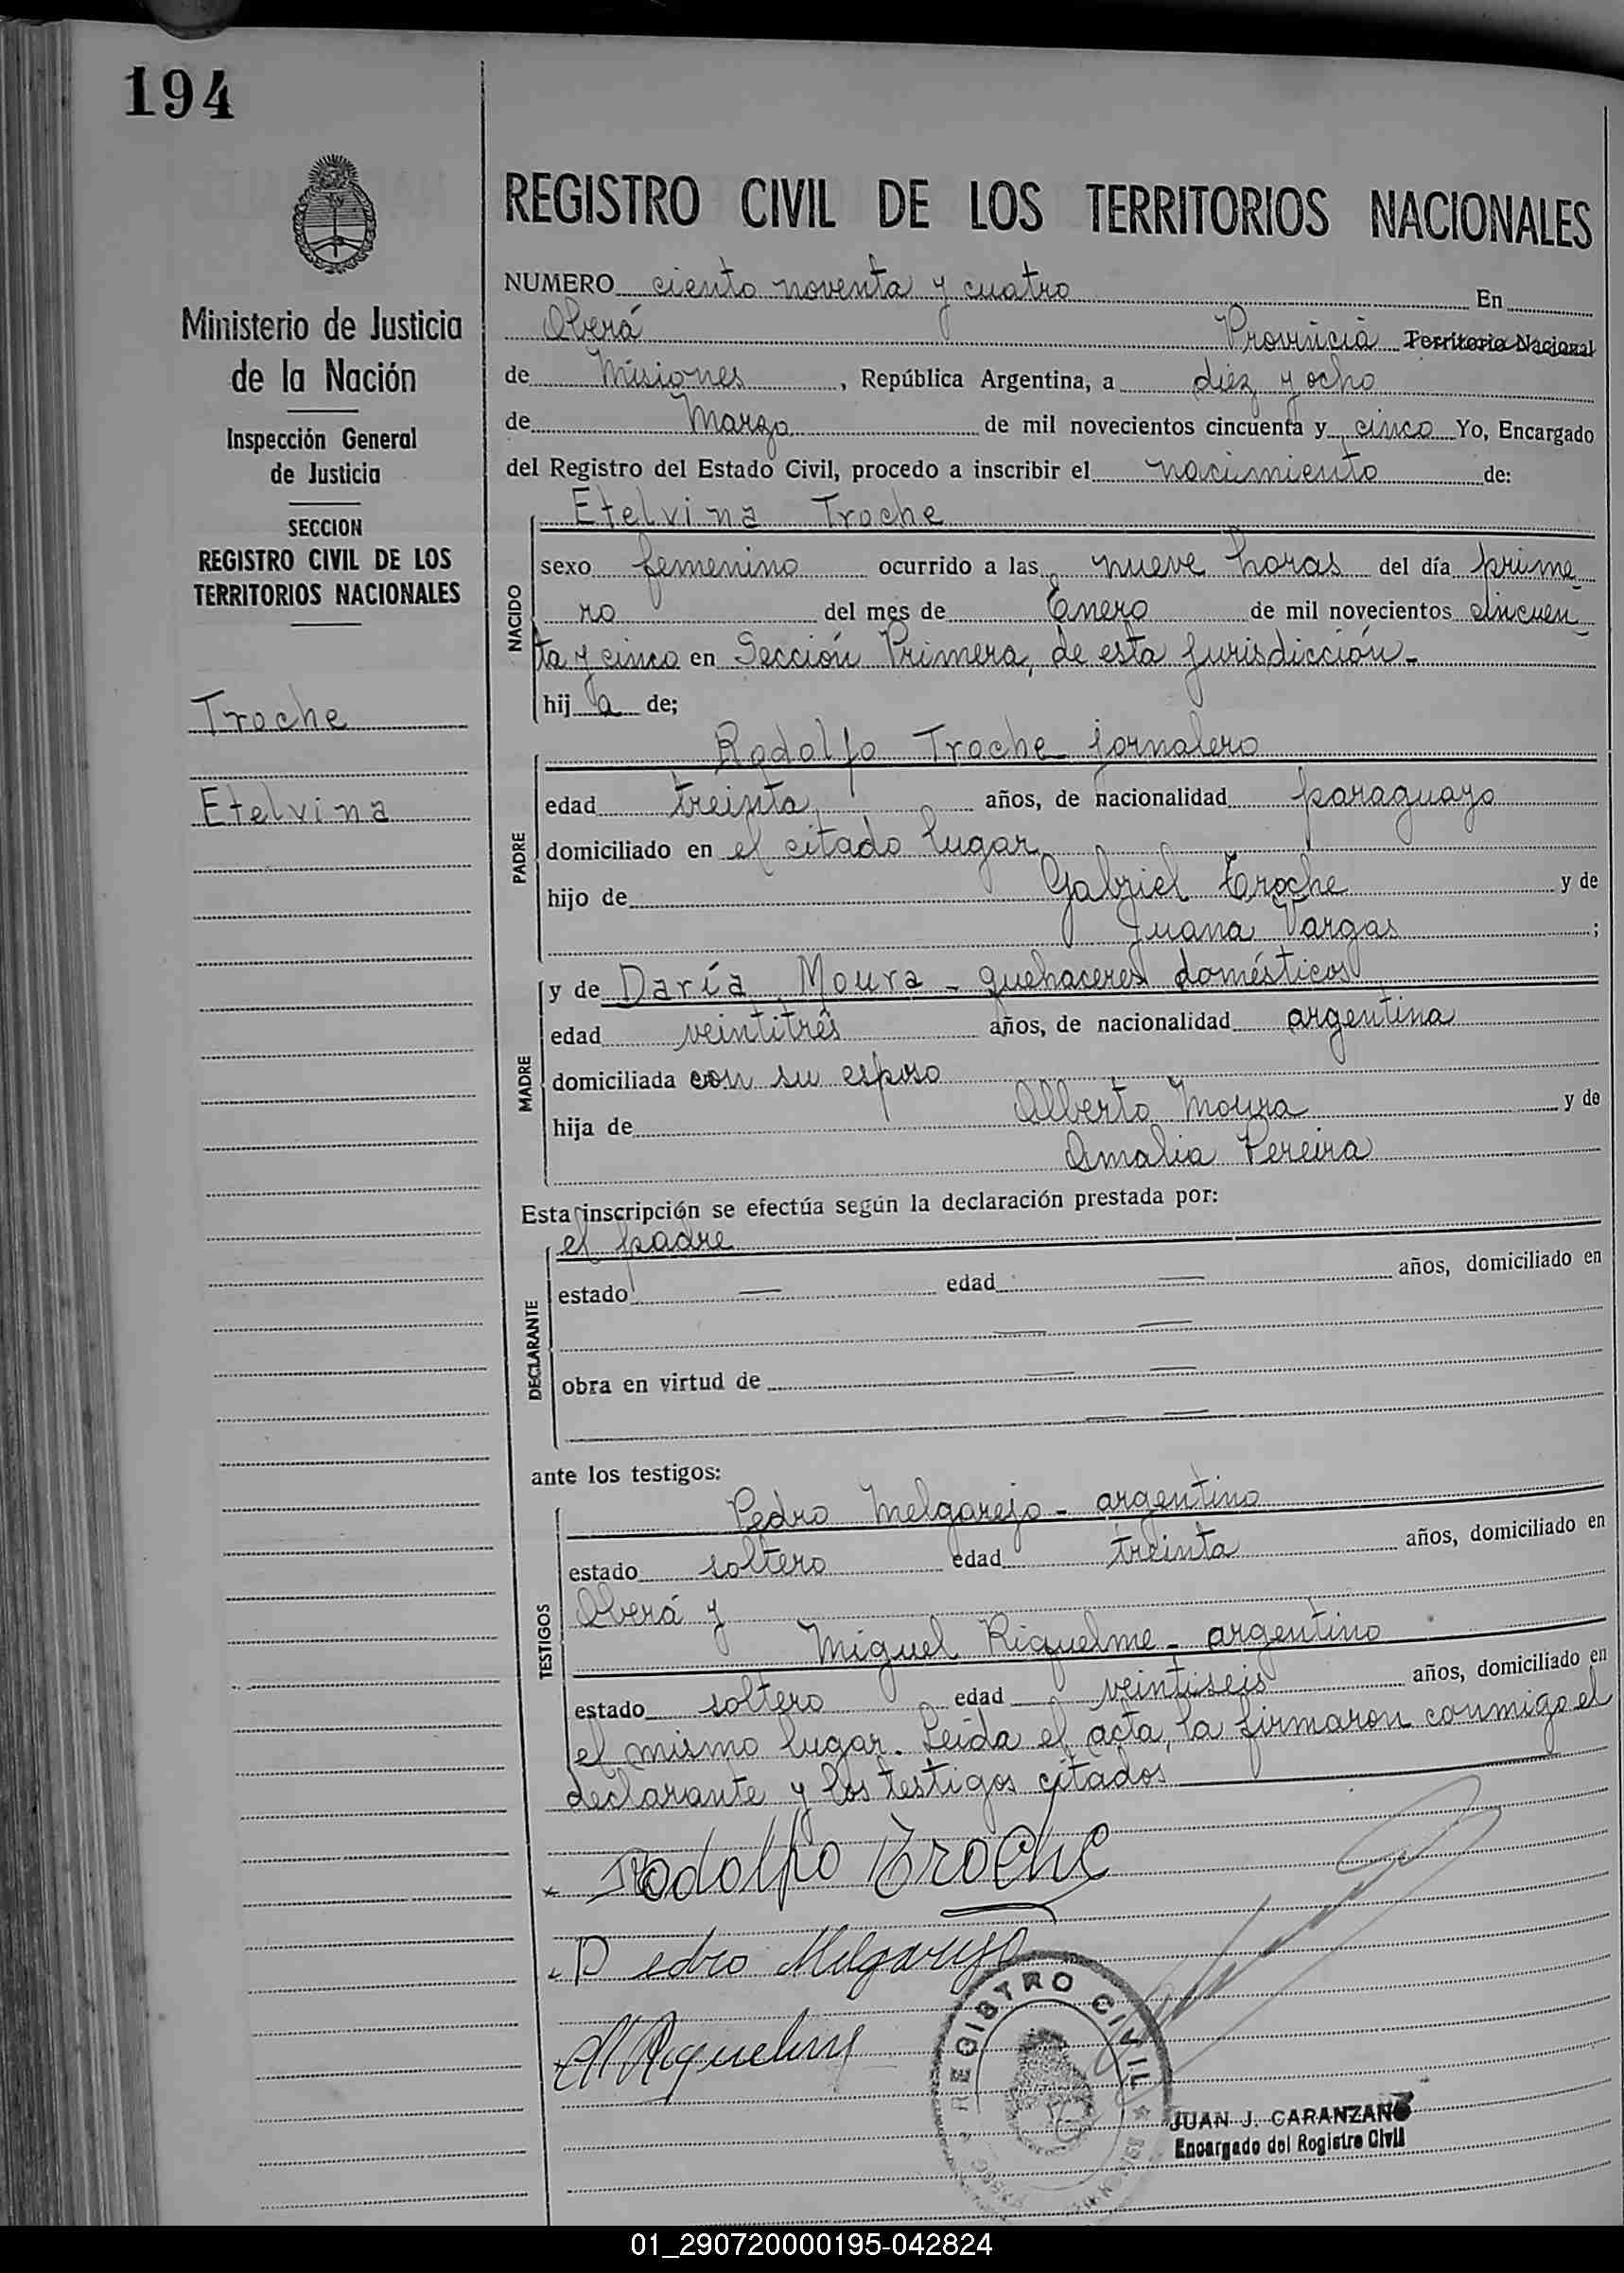 194
REGISTRO CIVIL DE LOS TERRITORIOS NACIONALES
Ministerio de Justicia
de la Nación
Inspección General
de Justicia
SECCION
REGISTRO CIVIL DE LOS
TERRITORIOS NACIONALES
Troche
Etelvina
NUMERO ciento noventa y cuatro En
Oberá Provincia Territorio Nacional
de Misiones, República Argentina, a diez y ocho
de Marzo de mil novecientos cincuenta y cinco Yo, Encargado
del Registro del Estado Civil, procedo a inscribir el nacimiento de:
NACIDO
Etelvina Troche
sexo femenino ocurrido a las nueve horas del día prime
ro del mes de Enero de mil novecientos cincuen
ta y cinco en Sección Primera, de esta jurisdicción-
hij a de;
PADRE
Rodolfo Troche jornalero
edad treinta años, de nacionalidad paraguayo
domiciliado en el citado lugar
hijo de Gabriel Troche y de
Juana Vargas;
MADRE
y de Daría Moura - quehaceres domésticos
edad veintitrés años, de nacionalidad argentina
domiciliada con su esposo
hija de Alberto Moura y de
Amalia Pereira
Esta inscripción se efectúa según la declaración prestada por:
DECLARANTE
el padre
estado — edad — años, domiciliado en
— —
obra en virtud de — —
— —
ante los testigos:
TESTIGOS
Pedro Melgarejo - argentino
estado soltero edad treinta años, domiciliado en
Oberá y
Miguel Riquelme - argentino
estado soltero edad veintiseis años, domiciliado en
el mismo lugar. Leída el acta, la firmaron conmigo el
declarante y los testigos citados
Rodolfo Troche
Pedro Melgarejo
M Riquelme
REGISTRO CIVIL
JUAN J. CARANZANO
Encargado del Registro Civil
01_290720000195-042824